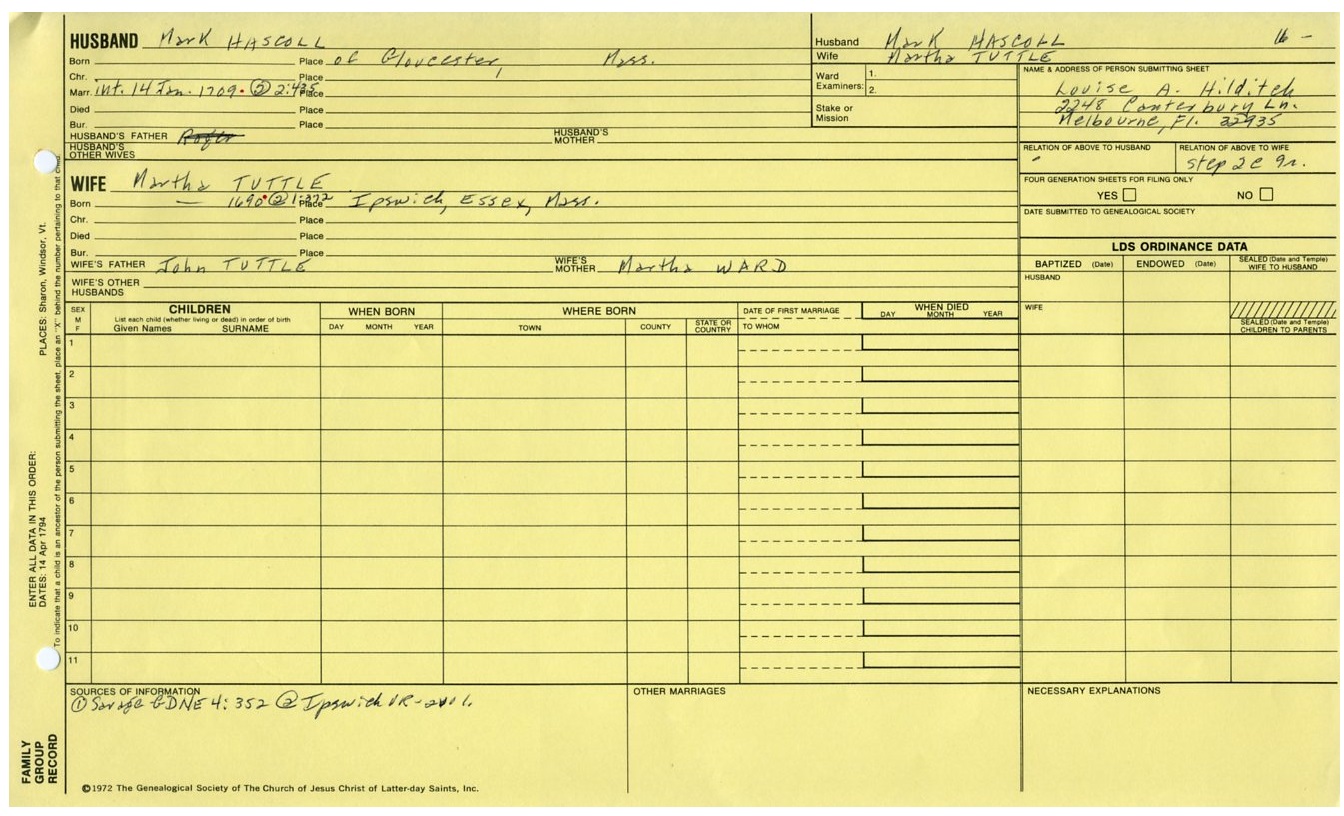 HUSBAND Mark HASCOLL
Born Place of Gloucester, Mass.
Chr. Place
Marr. int. 14 Jan. 1709. ② 2:435 Place
Died Place
Bur. Place
HUSBAND'S FATHER Roger HUSBAND'S MOTHER
HUSBAND'S OTHER WIVES
WIFE Martha TUTTLE
Born — 1690 ② 1:372 Place Ipswich, Essex, Mass.
Chr. Place
Died Place
Bur. Place
WIFE'S FATHER John TUTTLE WIFE'S MOTHER Martha WARD
WIFE'S OTHER HUSBANDS
Husband Mark HASCOLL
Wife Martha TUTTLE
Ward Examiners: 1.
2.
Stake or Mission
NAME & ADDRESS OF PERSON SUBMITTING SHEET
Louise A. Hilditch
2248 Canterbury Ln.
Melbourne, Fl. 32935
RELATION OF ABOVE TO HUSBAND RELATION OF ABOVE TO WIFE
step 2c 9r.
FOUR GENERATION SHEETS FOR FILING ONLY
YES NO
DATE SUBMITTED TO GENEALOGICAL SOCIETY
LDS ORDINANCE DATA
BAPTIZED (Date) ENDOWED (Date) SEALED (Date and Temple) WIFE TO HUSBAND
HUSBAND
WIFE
SEALED (Date and Temple) CHILDREN TO PARENTS
SEX M F
CHILDREN
List each child (whether living or dead) in order of birth
Given Names SURNAME
WHEN BORN
DAY MONTH YEAR
WHERE BORN
TOWN COUNTY STATE OR COUNTRY
DATE OF FIRST MARRIAGE
TO WHOM
WHEN DIED
DAY MONTH YEAR
1
2
3
4
5
6
7
8
9
10
11
SOURCES OF INFORMATION
① Savage GDNE 4: 352 ② Ipswich VR-2vol.
OTHER MARRIAGES
NECESSARY EXPLANATIONS
©1972 The Genealogical Society of The Church of Jesus Christ of Latter-day Saints, Inc.
FAMILY GROUP RECORD
ENTER ALL DATA IN THIS ORDER:
DATES: 14 Apr 1794
PLACES: Sharon, Windsor, Vt.
To indicate that a child is an ancestor of the person submitting the sheet, place an "X" behind the number pertaining to that child.